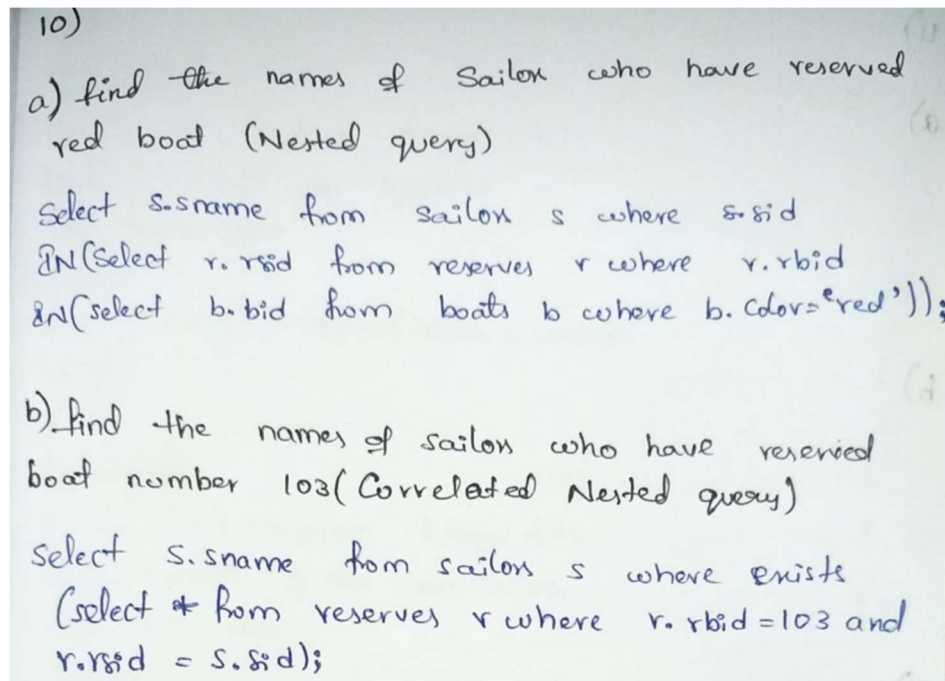 10)
a) find the names of Sailor who have reserved
red boat (Nested query)
Select s.sname from sailors s where s.sid
IN(Select r.rsid from reserves r where r.rbid
IN(select b.bid from boats b where b.color='red'));
b) find the names of sailors who have reserved
boat number 103( Correlated Nested query)
select s.sname from sailors s where exists
(select * from reserves r where r.rbid = 103 and
r.rsid = s.sid);